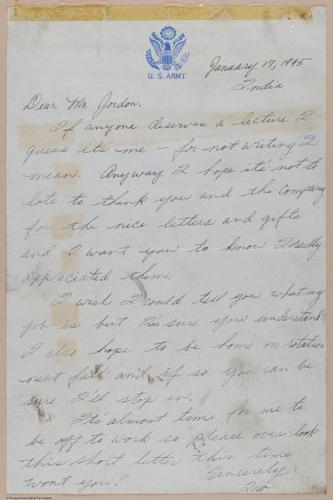 U.S. ARMY
January 17, 1945
India
Dear Mr. Jordon.
If anyone deserves a lecture I
guess it's me - for not writing I
mean. Anyway I hope it's not to
late to thank you and the company
for the nice letters and gifts
and I want you to know I really
appreciated them.
I wish I could tell you what my
job is but I'm sure you understand
I also hope to be home on rotation
next fall and if so you can be
sure I'll stop in.
It's almost time for me to
be off to work so please over-look
this short letter this time
wont you?
Sincerely,